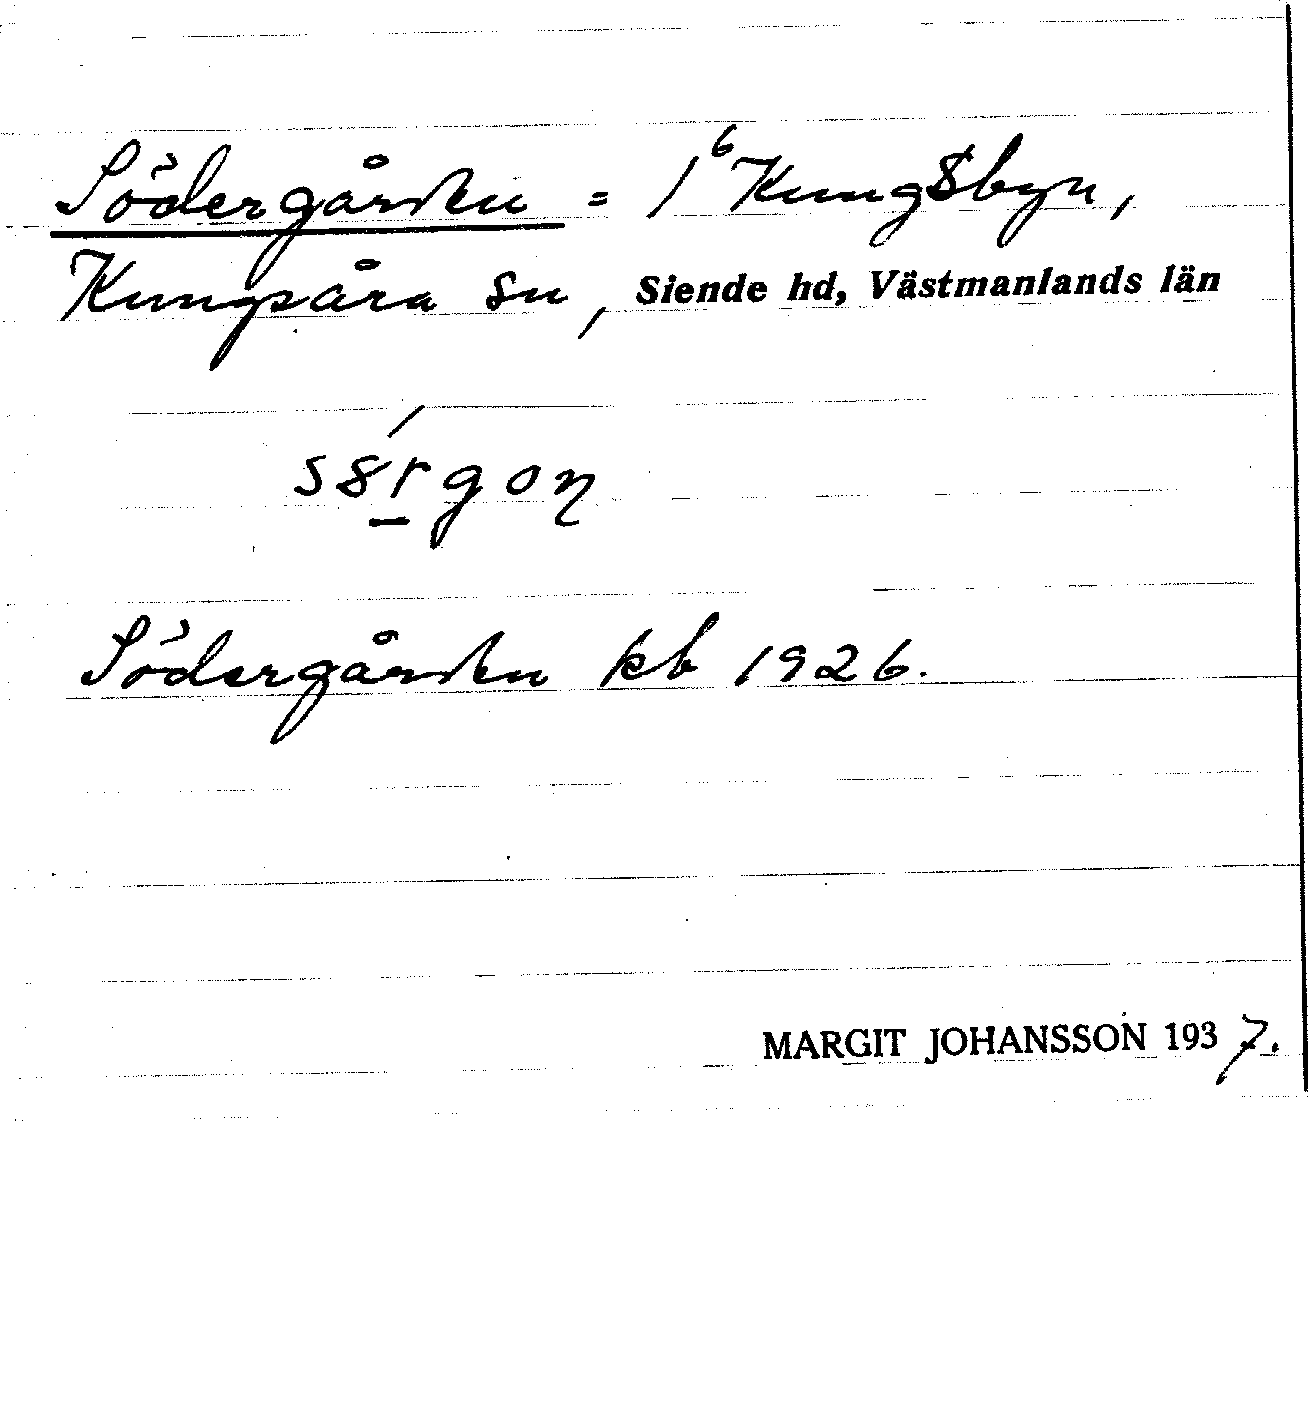 Södergården = 1⁶ Kungsbyn,
Kungsåra sn, Siende hd, Västmanlands län
Södergården kb 1926.
MARGIT JOHANSSON 1937.